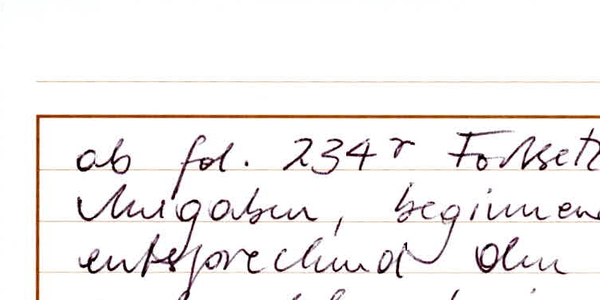 ab fol. 234r Fortsetz
Angaben, beginnen
entsprechend den